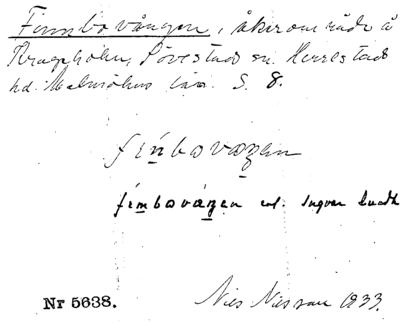 Finnbovången, åkerområde å
Krageholm, Sövestads sn. Herrestads
hd. Malmöhus län. S. 8.
finbovaŋen
finbováŋen enl. Ingvar Lundh
Nr 5638.
Nils Nilsson 1933.